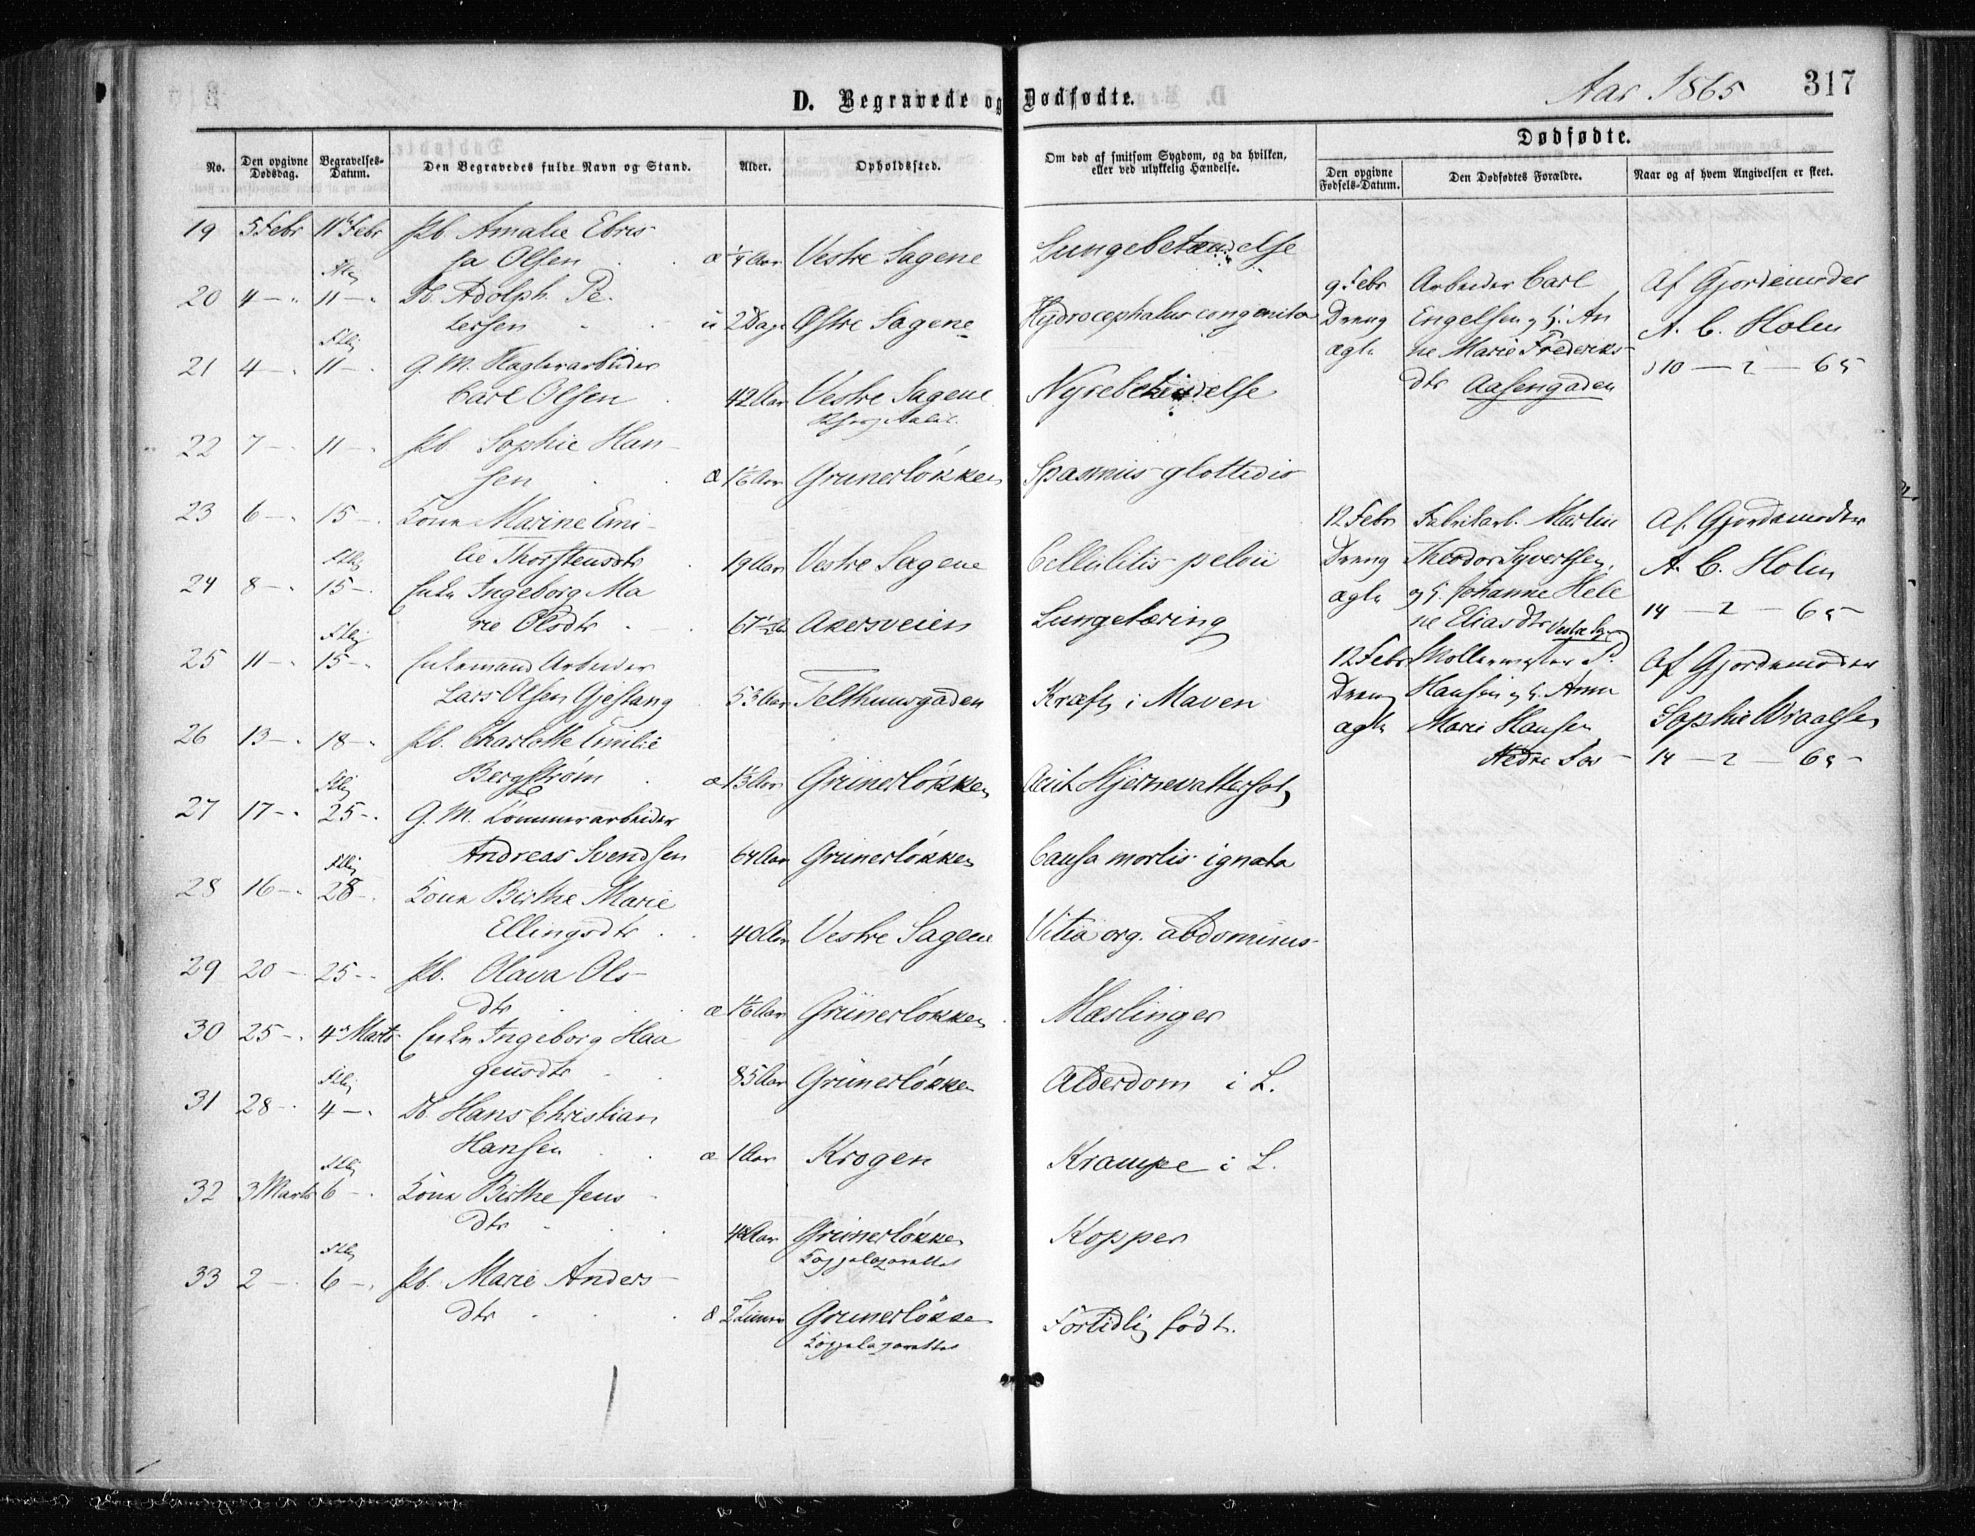 D. Begravede og Dødfødte.
Aar 1865
317
No.
Den opgivne Dødsdag.
Begravelses-Datum.
Den Begravedes fulde Navn og Stand.
Alder.
Opholdssted.
Om død af smitsom Sygdom, og da hvilken, eller ved ulykkelig Hændelse.
Dødfødte.
Den opgivne Fødsels-Datum.
Den Dødfødtes Forældre.
Naar og af hvem Angivelsen er skeet.
19 5 Febr 11 Febr Pb. Amalie Ebris-
sa Olsen æ 1/4 Aar Vestre Sagene Lungebetændelse
20 4 — 11 — Db. Adolph Pe-
tersen u 2 Dage Østre Sagene Hydrocephalus congenita
21 4 — 11 — G. M. Maglerarbeider
Carl Olsen 42 Aar Vestre Sagene Nyrebetændelse
22 7 — 11 — Pb. Sophie Han-
sen æ 1/6 Aar Grunerløkken Spasmus glottidis
23 6 — 15 — Kone Marine Emi-
lie Thorstensdtr 19 Aar Vestre Sagene Cellulitis pelvii
24 8 — 15 — Enke Ingeborg Ma
rie Olsdtr 67 1/2 Aar Akersveien Lungetæring
25 11 — 15 — Enkemand Arbeider
Lars Olsen Gjestang 53 Aar Telthuusgaden Kræft i Maven
26 13 — 18 — Pb. Charlotte Emilie
Bergstrøm æ 1/3 Aar Grünerløkken Acut Hjernevattersot
27 17 — 25 — G. M. Tømmerarbeider
Andreas Svendsen 64 Aar Grünerløkken Causa mortis ignota
28 16 — 28 — Kone Birthe Marie
Ellingsdtr 40 Aar Vestre Sagene Vitia org. abdominis
29 20 — 25 — Pb. Olava Ols-
dtr æ 1/6 Aar Grünerløkken Mæslinger
30 25 — 4 Marts Enke Ingeborg Haa
gensdtr 85 Aar Grünerløkken Alderdom i L.
31 28 — 4 — Db. Hans Christian
Hansen æ 1 Aar Krogen Krampe i L.
32 3 Marts 6 — Kone Birthe Jens
dtr Grünerløkken Kopper
Koppelazarettet
33 2 — 6 — Pb. Marie Anders-
dtr 2 Timer Grunerløkken Fortidlig født.
Koppelazarettet
9 Febr Arbeider Carl Af Gjordemoder
Dreng Engelsen og H. An A. C. Holm
ægte ne Marie Frederiks- 10 — 2 — 65
dtr Aasengaden
12 Febr Fabrikarb. Martin Af Gjordemoder
Dreng Theodor Syvertsen, A. C. Holm
ægte og H. Johanne Hele 14 — 2 — 65
ne Eliasdtr
12 Febr Møllermester P. Af Gjordemoder
Dreng Hansen og H. Anne Sophie Wraalsen
ægte Marie Hansen 14 — 2 — 65
Nedre Fos